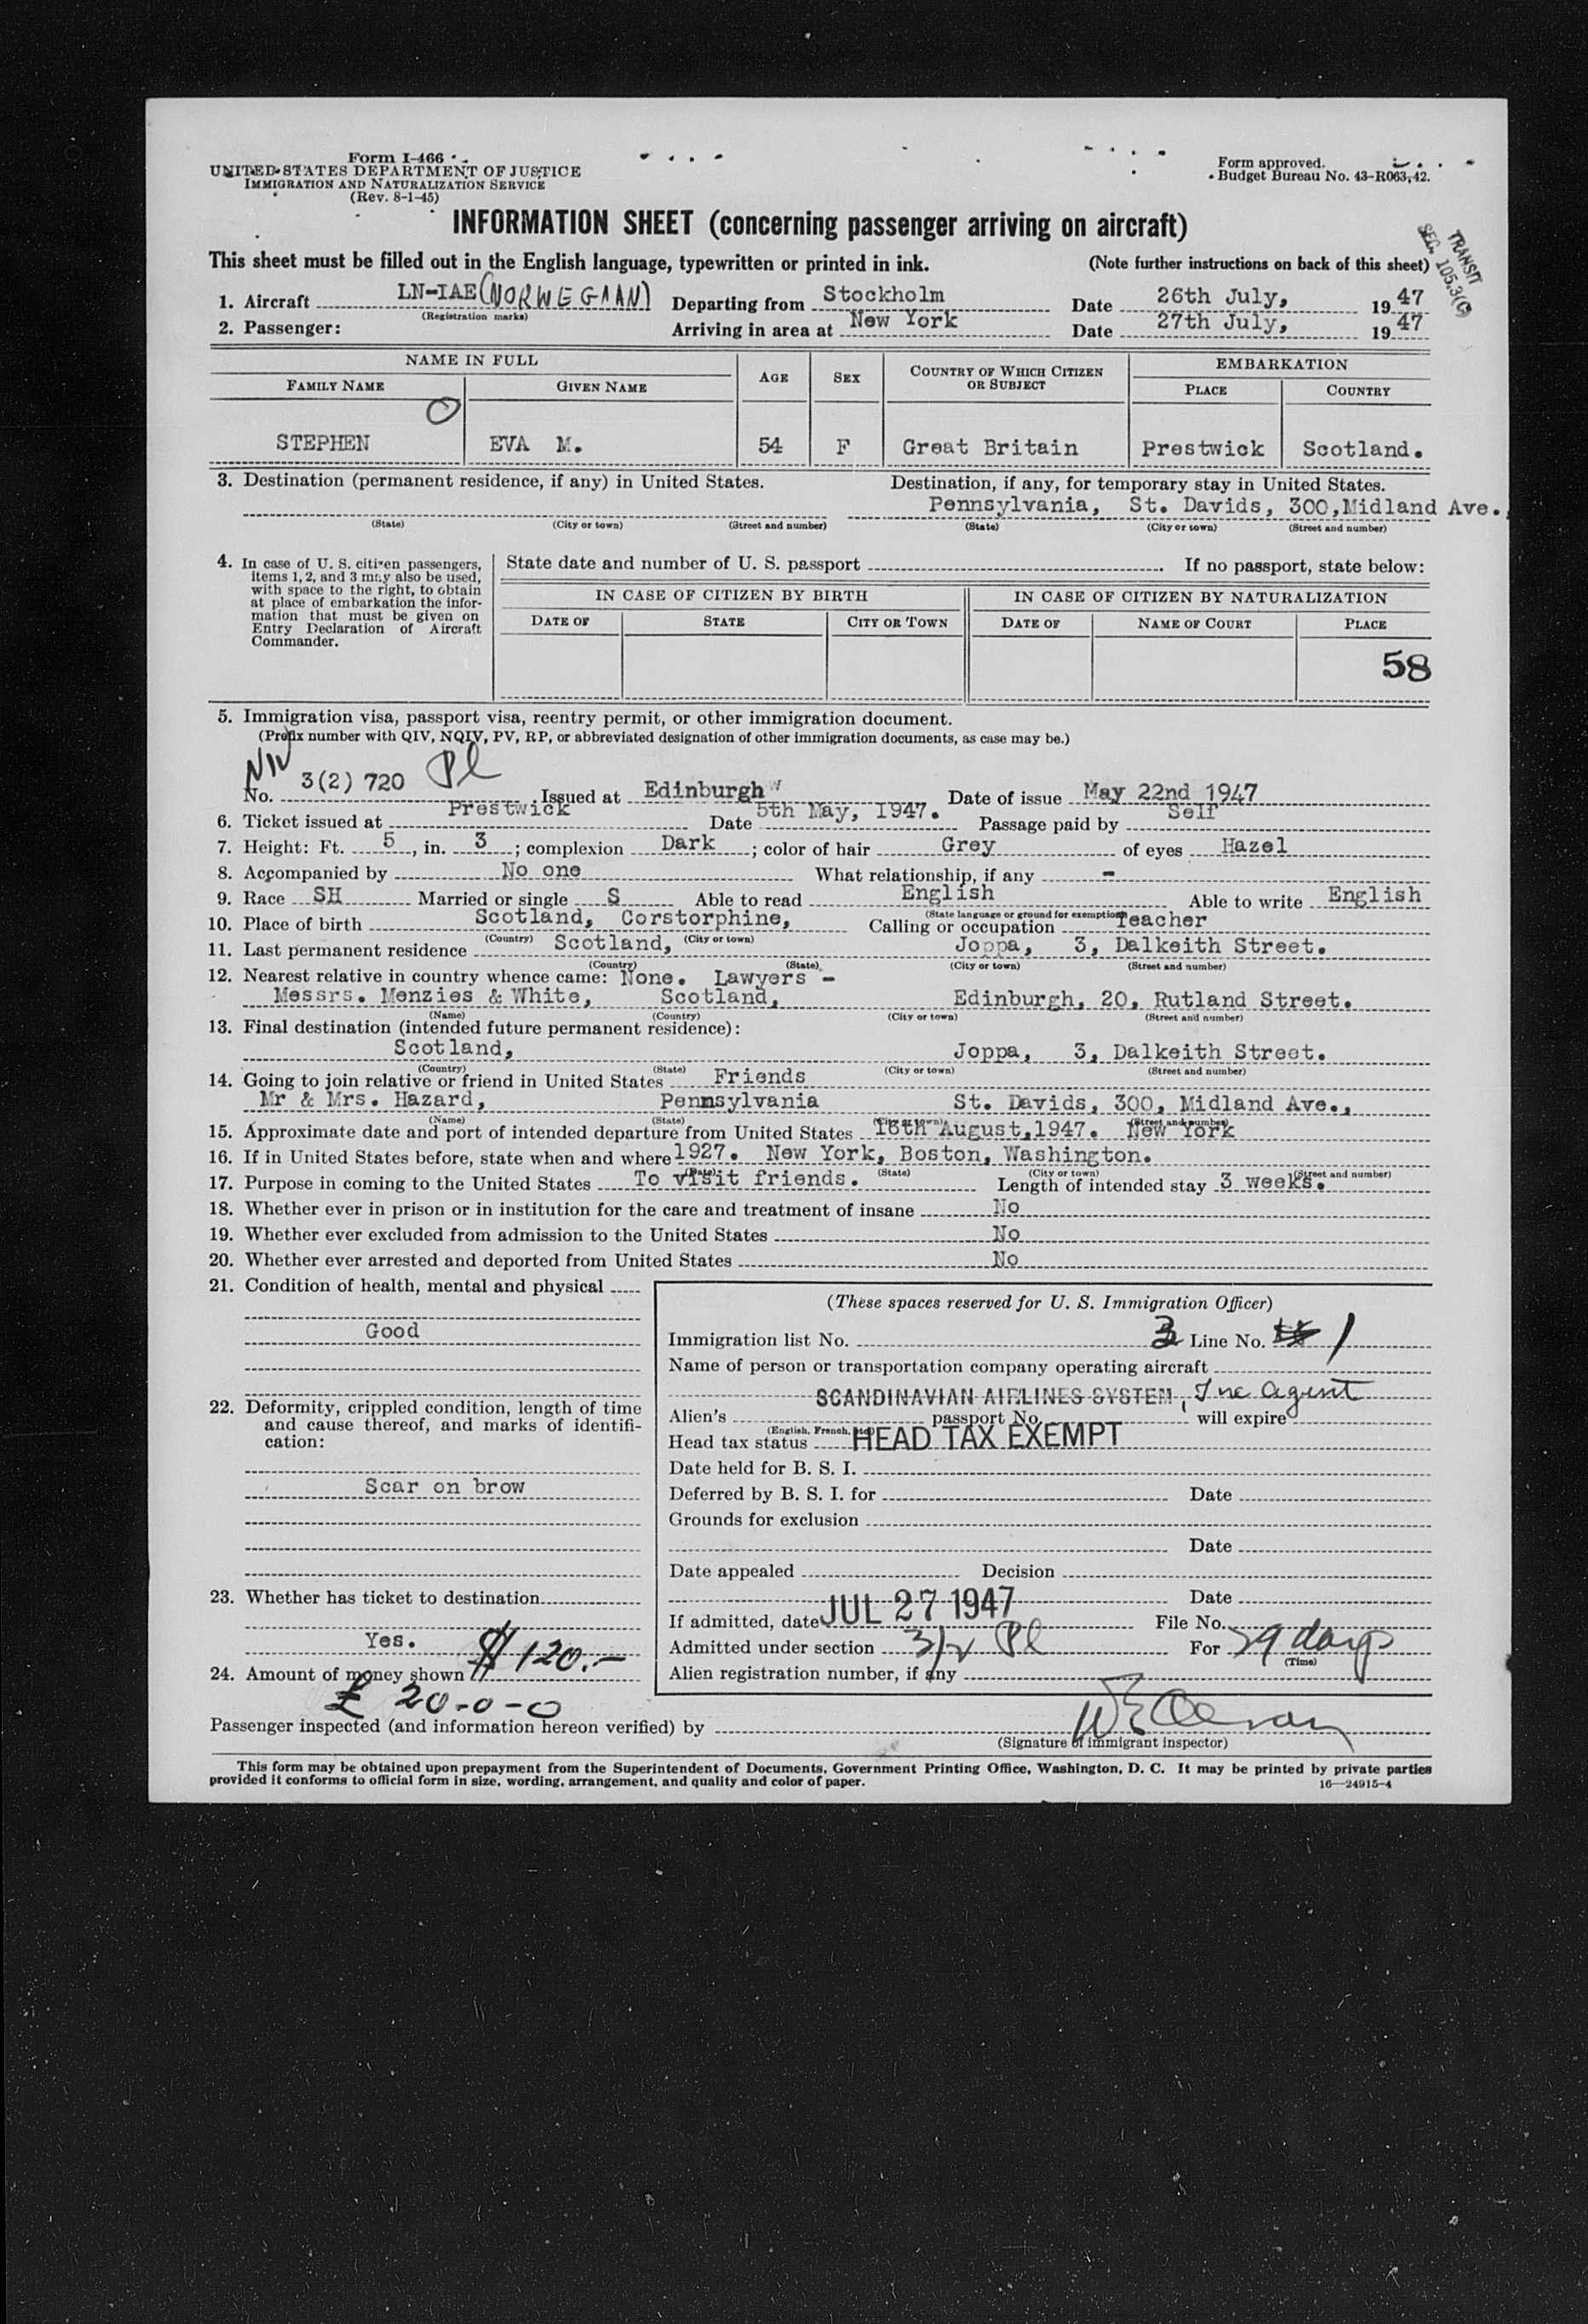 Form I-466
UNITED STATES DEPARTMENT OF JUSTICE
IMMIGRATION AND NATURALIZATION SERVICE
(Rev. 8-1-45)
Form approved.
Budget Bureau No. 43-R063.42.
INFORMATION SHEET (concerning passenger arriving on aircraft)
TRANSIT
SEC. 105.3(
This sheet must be filled out in the English language, typewritten or printed in ink. (Note further instructions on back of this sheet)
1. Aircraft LN-IAE (NORWEGAAN) Departing from Stockholm Date 26th July, 1947
(Registration marks)
2. Passenger: Arriving in area at New York Date 27th July, 1947
NAME IN FULL AGE SEX COUNTRY OF WHICH CITIZEN OR SUBJECT EMBARKATION
FAMILY NAME GIVEN NAME PLACE COUNTRY
STEPHEN EVA M. 54 F Great Britain Prestwick Scotland.
3. Destination (permanent residence, if any) in United States. Destination, if any, for temporary stay in United States.
Pennsylvania, St. Davids, 300,Midland Ave.,
(State) (City or town) (Street and number) (State) (City or town) (Street and number)
4. In case of U. S. citizen passengers, items 1, 2, and 3 may also be used, with space to the right, to obtain at place of embarkation the information that must be given on Entry Declaration of Aircraft Commander.
State date and number of U. S. passport If no passport, state below:
IN CASE OF CITIZEN BY BIRTH IN CASE OF CITIZEN BY NATURALIZATION
DATE OF STATE CITY OR TOWN DATE OF NAME OF COURT PLACE
58
5. Immigration visa, passport visa, reentry permit, or other immigration document.
(Prefix number with QIV, NQIV, PV, RP, or abbreviated designation of other immigration documents, as case may be.)
NIV
No. 3(2) 720 Pl Issued at Edinburgh Date of issue May 22nd 1947
6. Ticket issued at Prestwick Date 5th May, 1947. Passage paid by Self
7. Height: Ft. 5, in. 3; complexion Dark; color of hair Grey of eyes Hazel
8. Accompanied by No one What relationship, if any -
9. Race SH Married or single S Able to read English Able to write English
(State language or ground for exemption)
10. Place of birth Scotland, Corstorphine, Calling or occupation Teacher
(Country) (City or town)
11. Last permanent residence Scotland, Joppa, 3, Dalkeith Street.
(Country) (State) (City or town) (Street and number)
12. Nearest relative in country whence came: None. Lawyers -
Messrs. Menzies & White, Scotland, Edinburgh, 20, Rutland Street.
(Name) (Country) (City or town) (Street and number)
13. Final destination (intended future permanent residence):
Scotland, Joppa, 3, Dalkeith Street.
(Country) (State) (City or town) (Street and number)
14. Going to join relative or friend in United States Friends
Mr & Mrs. Hazard, Pennsylvania St. Davids, 300, Midland Ave.,
(Name) (State) (City or town) (Street and number)
15. Approximate date and port of intended departure from United States 16th August,1947. New York
16. If in United States before, state when and where 1927. New York, Boston, Washington.
(Date) (State) (City or town) (Street and number)
17. Purpose in coming to the United States To visit friends. Length of intended stay 3 weeks.
18. Whether ever in prison or in institution for the care and treatment of insane No
19. Whether ever excluded from admission to the United States No
20. Whether ever arrested and deported from United States No
21. Condition of health, mental and physical
Good
22. Deformity, crippled condition, length of time and cause thereof, and marks of identification:
Scar on brow
23. Whether has ticket to destination
Yes.
24. Amount of money shown $ 120.-
£ 20-0-0
(These spaces reserved for U. S. Immigration Officer)
Immigration list No. 3 Line No. 1
Name of person or transportation company operating aircraft
SCANDINAVIAN AIRLINES SYSTEM, Inc Agent
Alien's passport No. will expire
(English, French, etc.)
Head tax status HEAD TAX EXEMPT
Date held for B. S. I.
Deferred by B. S. I. for Date
Grounds for exclusion
Date
Date appealed Decision
Date
If admitted, date JUL 27 1947 File No.
Admitted under section 3/2 Pl For 29 days
(Time)
Alien registration number, if any
Passenger inspected (and information hereon verified) by
(Signature of immigrant inspector)
This form may be obtained upon prepayment from the Superintendent of Documents, Government Printing Office, Washington, D. C. It may be printed by private parties
provided it conforms to official form in size, wording, arrangement, and quality and color of paper. 16—24915-4